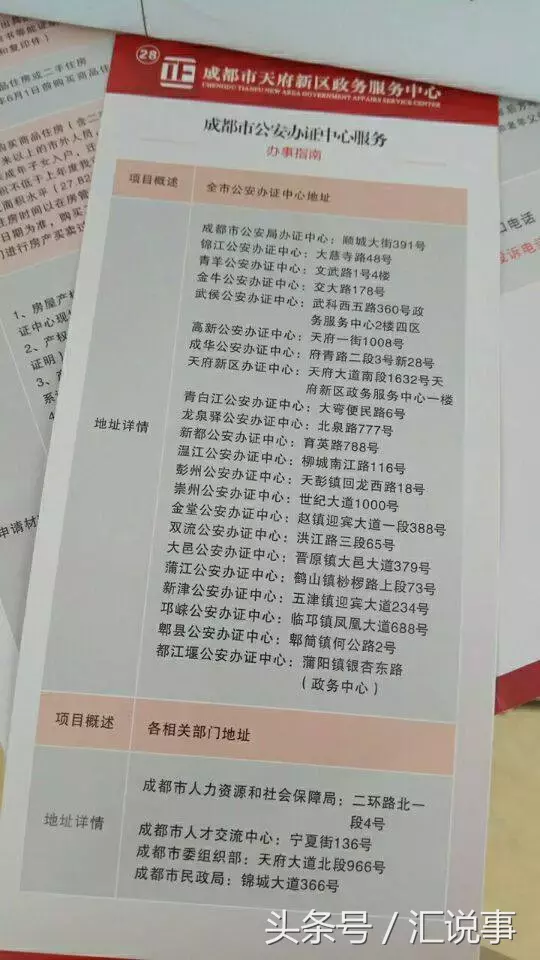 出
书等能
和复印件）
品住房或二手住房
年6月1日前购买商品住
购买商品住房（含二
米以上的市外人员，
成年子女入户，迁
积不低于上年度我
面积水平（27.82
住房时间以在房管
日期为准，购买
门进行房产买卖过
1、房屋产权
证中心现
2、产权
证明）
3、产
系证
申请材
28
成都市天府新区政务服务中心
CHENGDU TIANFU NEW AREA GOVERNMENT AFFAIRS SERVICE CENTER
成都市公安办证中心服务
办事指南
项目概述 全市公安办证中心地址
地址详情
成都市公安局办证中心：顺城大街391号
锦江公安办证中心：大慈寺路48号
青羊公安办证中心：文武路1号4楼
金牛公安办证中心：交大路178号
武侯公安办证中心：武科西五路360号政
务服务中心2楼四区
高新公安办证中心：天府一街1008号
成华公安办证中心：府青路二段3号新28号
天府新区办证中心：天府大道南段1632号天
府新区政务服务中心一楼
青白江公安办证中心：大弯便民路6号
龙泉驿公安办证中心：北泉路777号
新都公安办证中心：育英路788号
温江公安办证中心：柳城南江路116号
彭州公安办证中心：天彭镇回龙西路18号
崇州公安办证中心：世纪大道1000号
金堂公安办证中心：赵镇迎宾大道一段388号
双流公安办证中心：洪江路三段65号
大邑公安办证中心：晋原镇大邑大道379号
蒲江公安办证中心：鹤山镇桫椤路上段73号
新津公安办证中心：五津镇迎宾大道234号
邛崃公安办证中心：临邛镇凤凰大道688号
郫县公安办证中心：郫筒镇何公路2号
都江堰公安办证中心：蒲阳镇银杏东路
（政务中心）
项目概述 各相关部门地址
地址详情
成都市人力资源和社会保障局：二环路北一
段4号
成都市人才交流中心：宁夏街136号
成都市委组织部：天府大道北段966号
成都市民政局：锦城大道366号
电话
投诉电话
头条号／汇说事